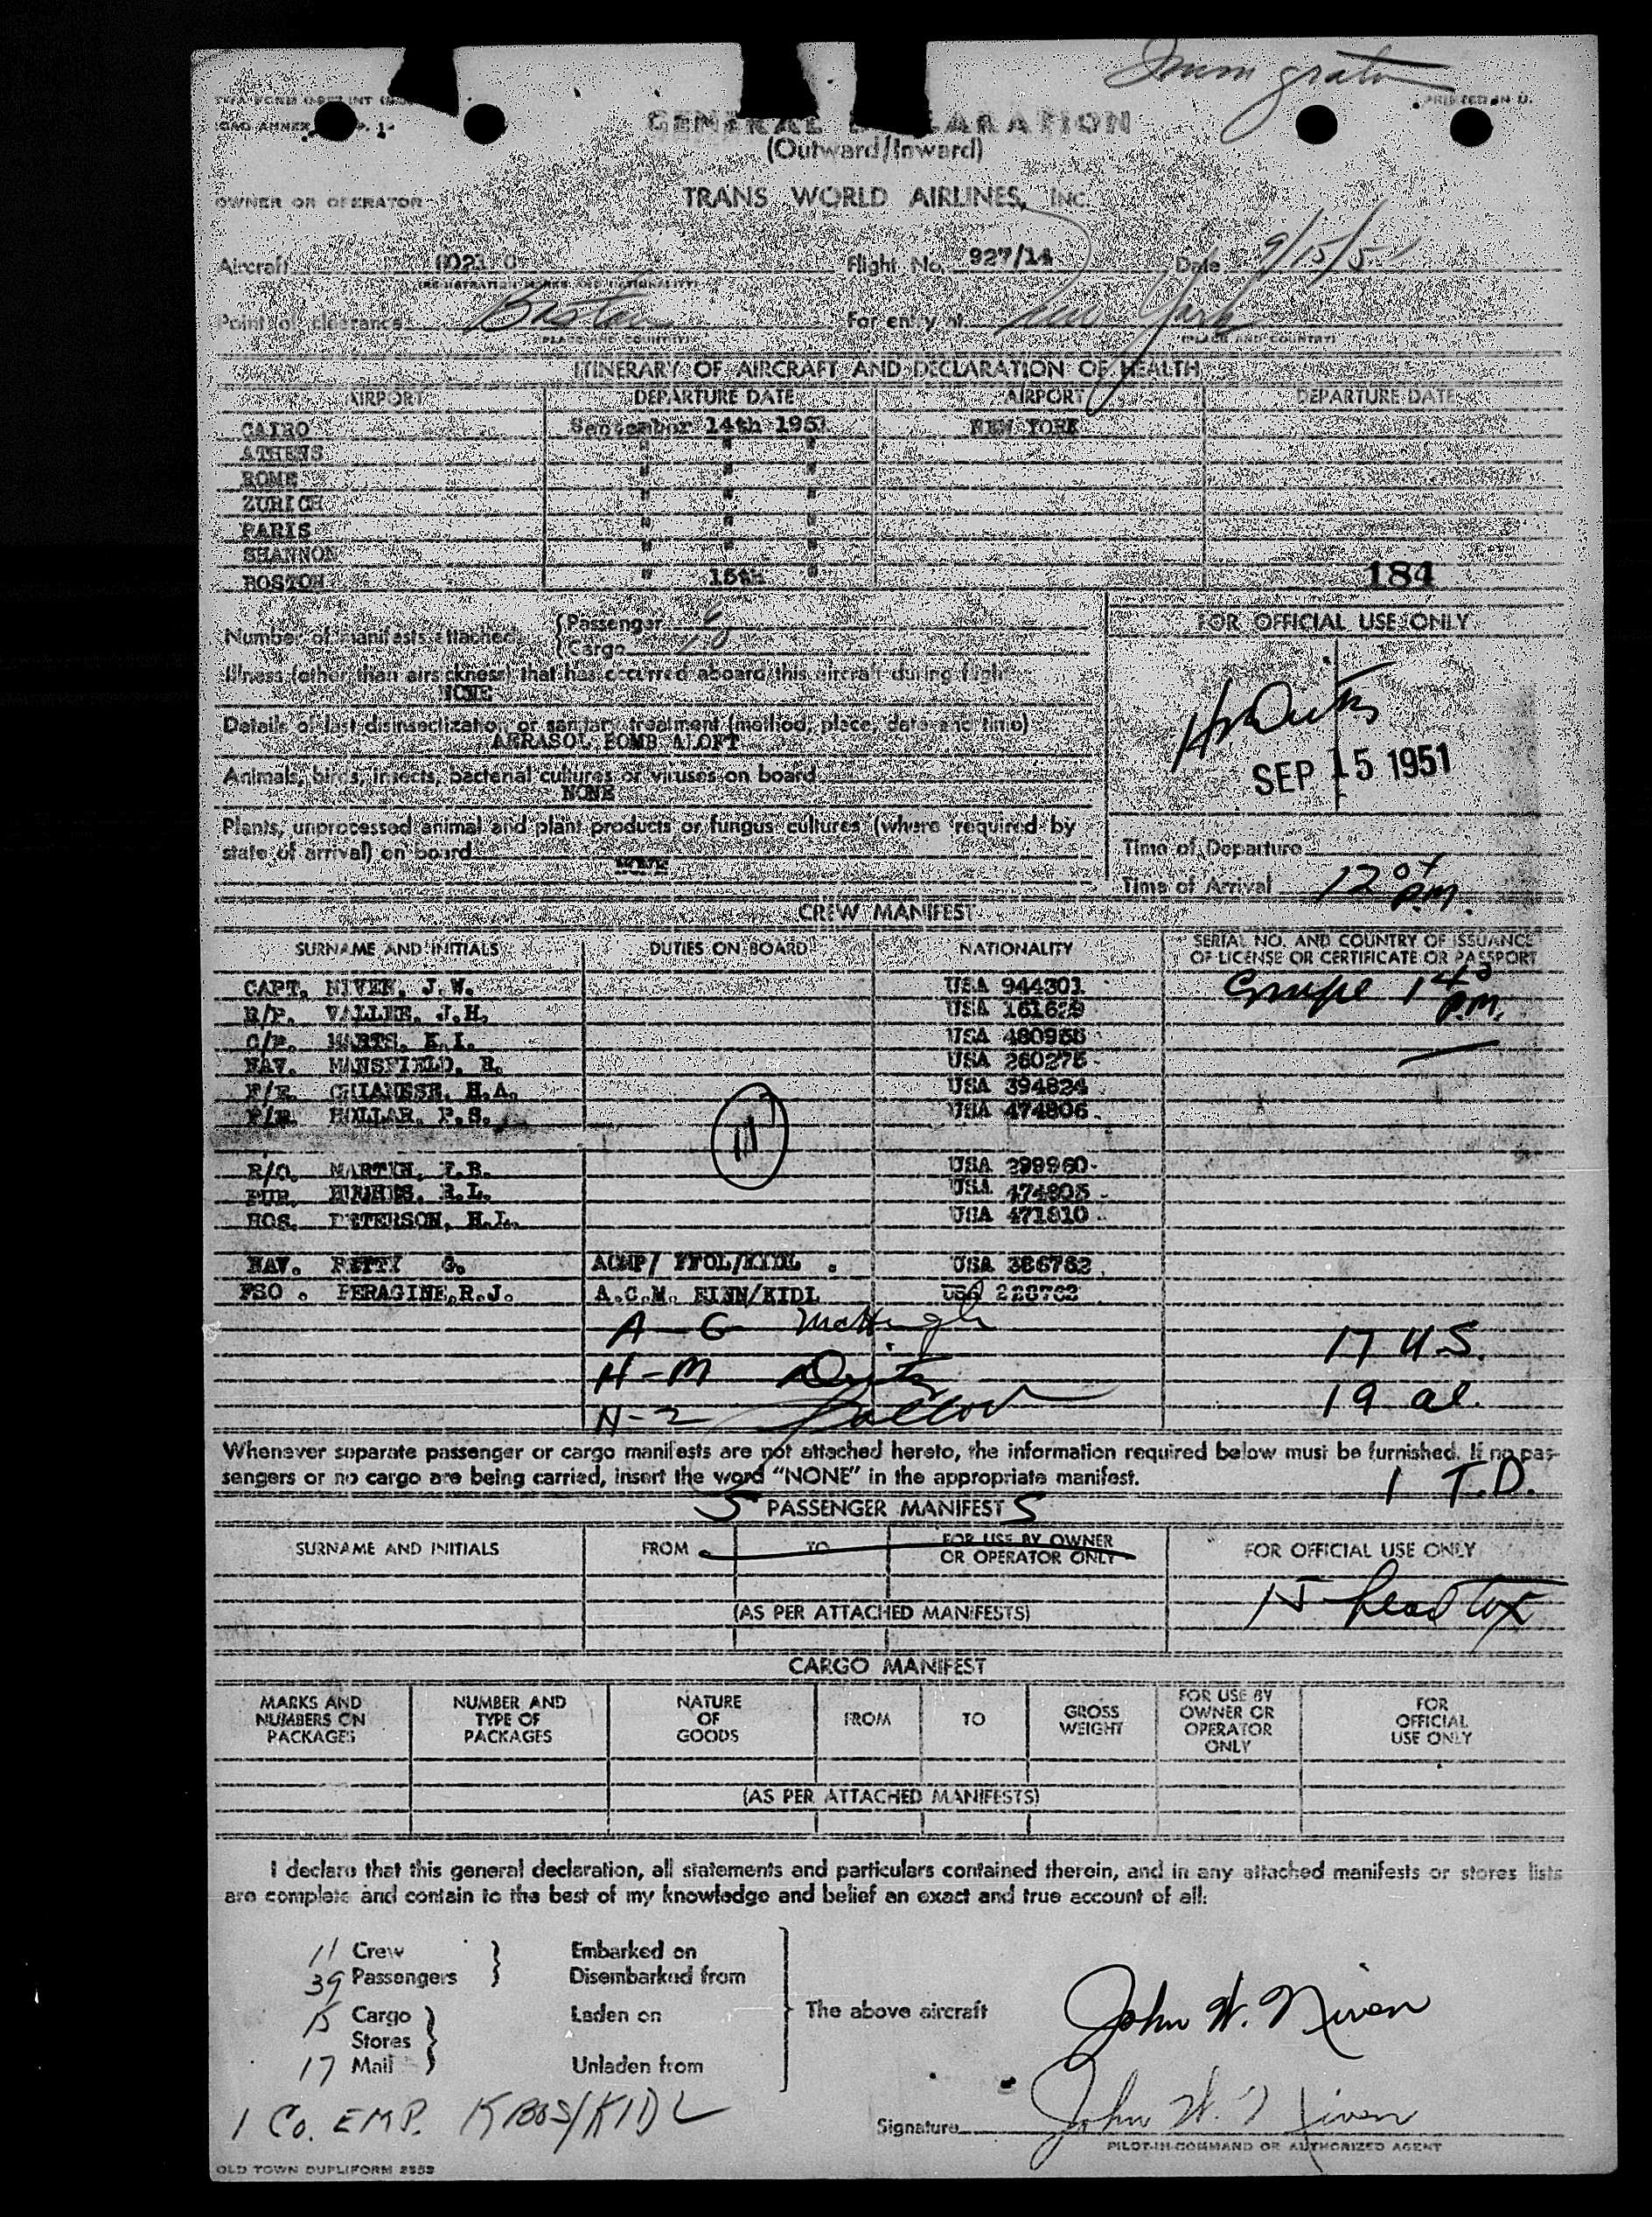 Immigration
PRINTED IN U.
P. 1
GENERAL DECLARATION
(Outward/Inward)
OWNER OR OPERATOR
TRANS WORLD AIRLINES, INC.
Aircraft Flight No. 927/14 Date 9/15/51
(REGISTRATION MARKS AND NATIONALITY)
Point of clearance Boston For entry at New York
(PLACE AND COUNTRY) (PLACE AND COUNTRY)
ITINERARY OF AIRCRAFT AND DECLARATION OF HEALTH
AIRPORT DEPARTURE DATE AIRPORT DEPARTURE DATE
CAIRO September 14th 1951 NEW YORK
ATHENS " " "
ROME " " "
ZURICH " " "
PARIS " " "
SHANNON " " "
BOSTON " 15th "
184
Number of manifests attached {Passenger 6
{Cargo
FOR OFFICIAL USE ONLY
Illness (other than airsickness) that has occurred aboard this aircraft during flight
NONE
Details of last disinsectization or sanitary treatment (method, place, date and time)
AERASOL BOMB ALOFT
SEP 15 1951
Animals, birds, insects, bacterial cultures or viruses on board
NONE
Plants, unprocessed animal and plant products or fungus cultures (where required by
state of arrival) on board
NONE
Time of Departure
Time of Arrival 12 07 P.M.
CREW MANIFEST
SURNAME AND INITIALS DUTIES ON BOARD NATIONALITY SERIAL NO. AND COUNTRY OF ISSUANCE
OF LICENSE OR CERTIFICATE OR PASSPORT
CAPT. NIVEN, J.W. USA 944301
VALLEE, J.H. USA 161629
USA 480955
NAV. MANSFIELD, R. USA 260275
F/E. CHIANESE, H.A. USA 394824
F/E. HOLLAR, P.S. USA 474806
11
R/O. MARTIN, USA 299960
PUR. HUGHES, R.L. USA 474805
HOS. PETERSON, H.L. USA 471810
NAV. PETTY G. ACMP/ FFOL/KIDL USA 386762
FSO. PERAGINE, R.J. A.C.M. EINN/KIDL USA 228762
A-G
17 U.S.
H-M
19 al.
N-Z
Whenever separate passenger or cargo manifests are not attached hereto, the information required below must be furnished. If no pas-
sengers or no cargo are being carried, insert the word "NONE" in the appropriate manifest.
1 T.D.
5 PASSENGER MANIFEST 5
SURNAME AND INITIALS FROM TO FOR USE BY OWNER
OR OPERATOR ONLY FOR OFFICIAL USE ONLY
15 head tax
(AS PER ATTACHED MANIFESTS)
CARGO MANIFEST
MARKS AND
NUMBERS ON
PACKAGES NUMBER AND
TYPE OF
PACKAGES NATURE
OF
GOODS FROM TO GROSS
WEIGHT FOR USE BY
OWNER OR
OPERATOR
ONLY FOR
OFFICIAL
USE ONLY
(AS PER ATTACHED MANIFESTS)
I declare that this general declaration, all statements and particulars contained therein, and in any attached manifests or stores lists
are complete and contain to the best of my knowledge and belief an exact and true account of all:
11 Crew Embarked on
39 Passengers Disembarked from
15 Cargo Laden on The above aircraft John W. Niven
Stores
17 Mail Unladen from
1 Co. EMP. KBOS/KIDL
Signature John W. Niven
PILOT-IN-COMMAND OR AUTHORIZED AGENT
OLD TOWN DUPLIFORM